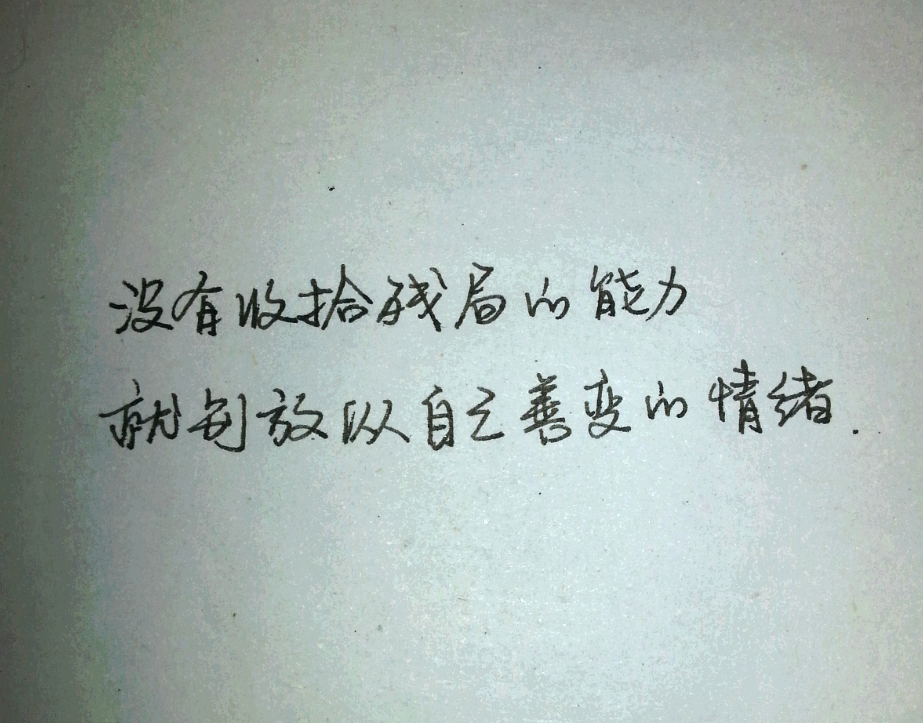 没有收拾残局的能力
就别放纵自己善变的情绪.